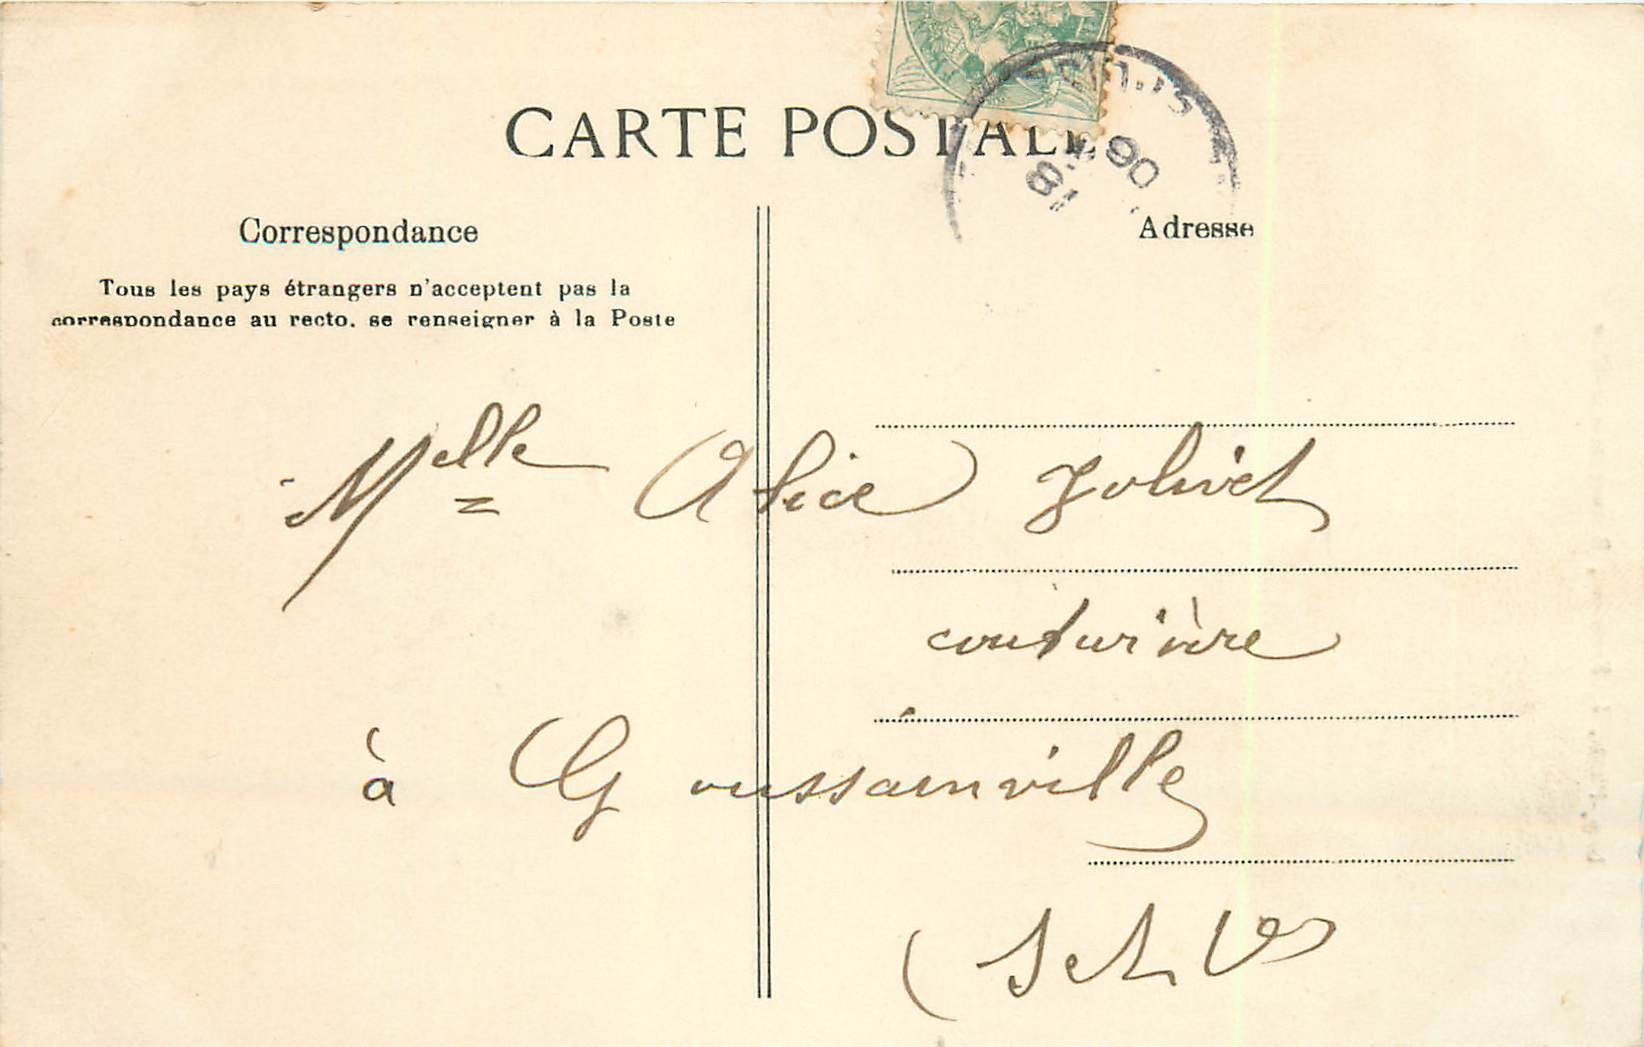 CARTE POSTALE
18
06
Correspondance
Adresse
Tous les pays étrangers n'acceptent pas la
correspondance au recto. se renseigner à la Poste
Melle Alice Jolivet
couturière
à Goussainville
(S et O